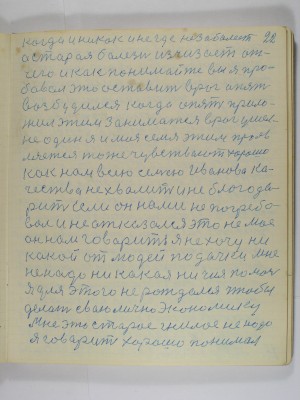 когда и никак и не где не заболит 22
а старая болезн изчизает от-
чего и как понимайте вы я про-
бовал это оставит врог опят
возбудился когда опят прило-
жил этим Заниматся врог ушол
не один я и моя семя этим прояв
ляется тоже чувствают хорошо
как нам всию семю Иванова ка-
чества не хвалит и не благода-
рит если он нами не потребо-
вал и не отказался Это не мое
он нам говарить Я не хочу ни
какой от людей подачки мне
не надо ни какая ничия помощ
Я для этого не рождался чтобы
делат сваю лично Экономику
Мне это старое гнилое не надо
я говарит хорошо понимал